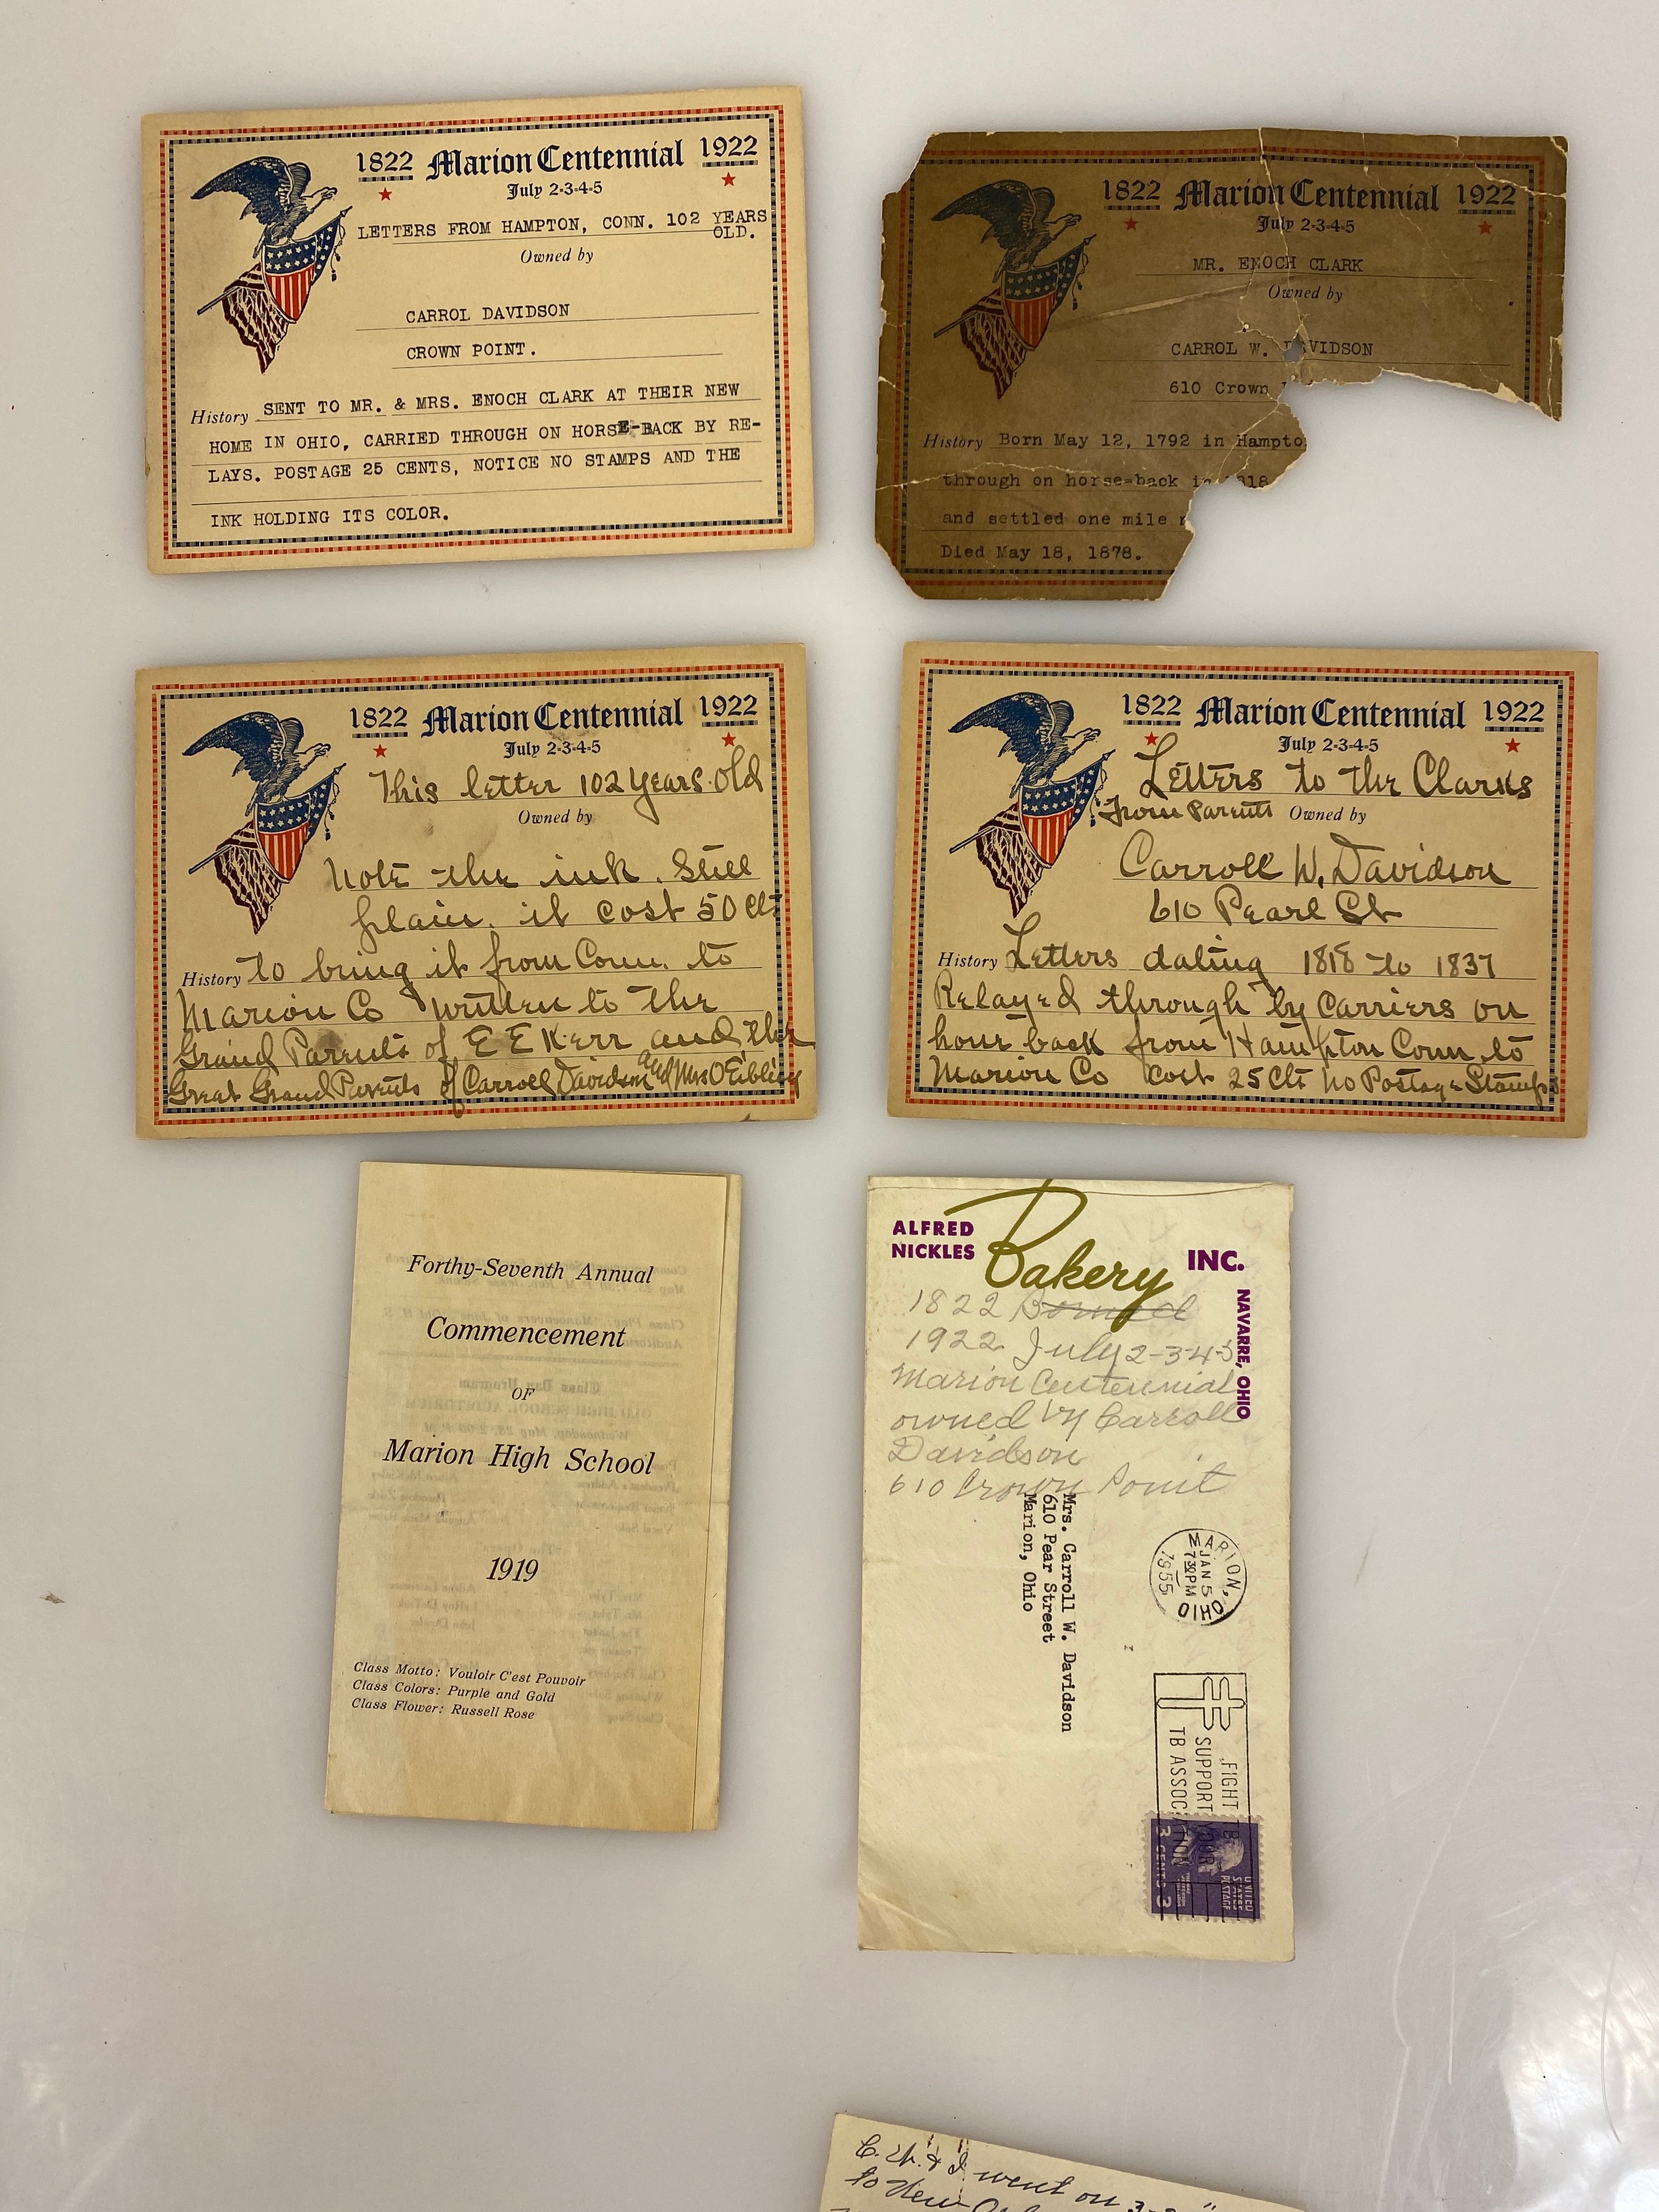 1822 Marion Centennial 1922
July 2-3-4-5
LETTERS FROM HAMPTON, CONN. 102 YEARS
OLD.
Owned by
CARROL DAVIDSON
CROWN POINT.
History SENT TO MR. & MRS. ENOCH CLARK AT THEIR NEW
HOME IN OHIO, CARRIED THROUGH ON HORSE-BACK BY RE-
LAYS. POSTAGE 25 CENTS, NOTICE NO STAMPS AND THE
INK HOLDING ITS COLOR.
1822 Marion Centennial 1922
July 2-3-4-5
MR. ENOCH CLARK
Owned by
CARROL W. DAVIDSON
610 Crown
History Born May 12, 1792 in Hampto
through on horse-back in 1818
and settled one mile
Died May 18, 1878.
1822 Marion Centennial 1922
July 2-3-4-5
This letter 102 Years Old
Owned by
Note the ink. Still
plain. it cost 50 Cts
History to bring it from Conn. to
Marion Co written to the
Grand Parents of E E Kerr and the
Great Grand Parents of Carroll Davidson and Mrs O Eibling
1822 Marion Centennial 1922
July 2-3-4-5
Letters to the Clarks
From Parents Owned by
Carroll W. Davidson
610 Pearl St
History Letters dating 1818 to 1837
Relayed through by Carriers on
hour back from Hampton Conn. to
Marion Co Cost 25 Cts No Postage Stamps
Forthy-Seventh Annual
Commencement
OF
Marion High School
1919
Class Motto: Vouloir C'est Pouvoir
Class Colors: Purple and Gold
Class Flower: Russell Rose
ALFRED
NICKLES Bakery INC.
NAVARRE, OHIO
1822
1922 July 2-3-4-5
Marion Centennial
owned by Carroll
Davidson
610 Crown Point
Mrs. Carroll W. Davidson
610 Pear Street
Marion, Ohio
MARION, OHIO
JAN 5
7 30 PM
1955
FIGHT TB
SUPPORT YOUR
TB ASSOCIATION
UNITED
STATES
POSTAGE
3 CENTS 3
C. W. & I went on
to New